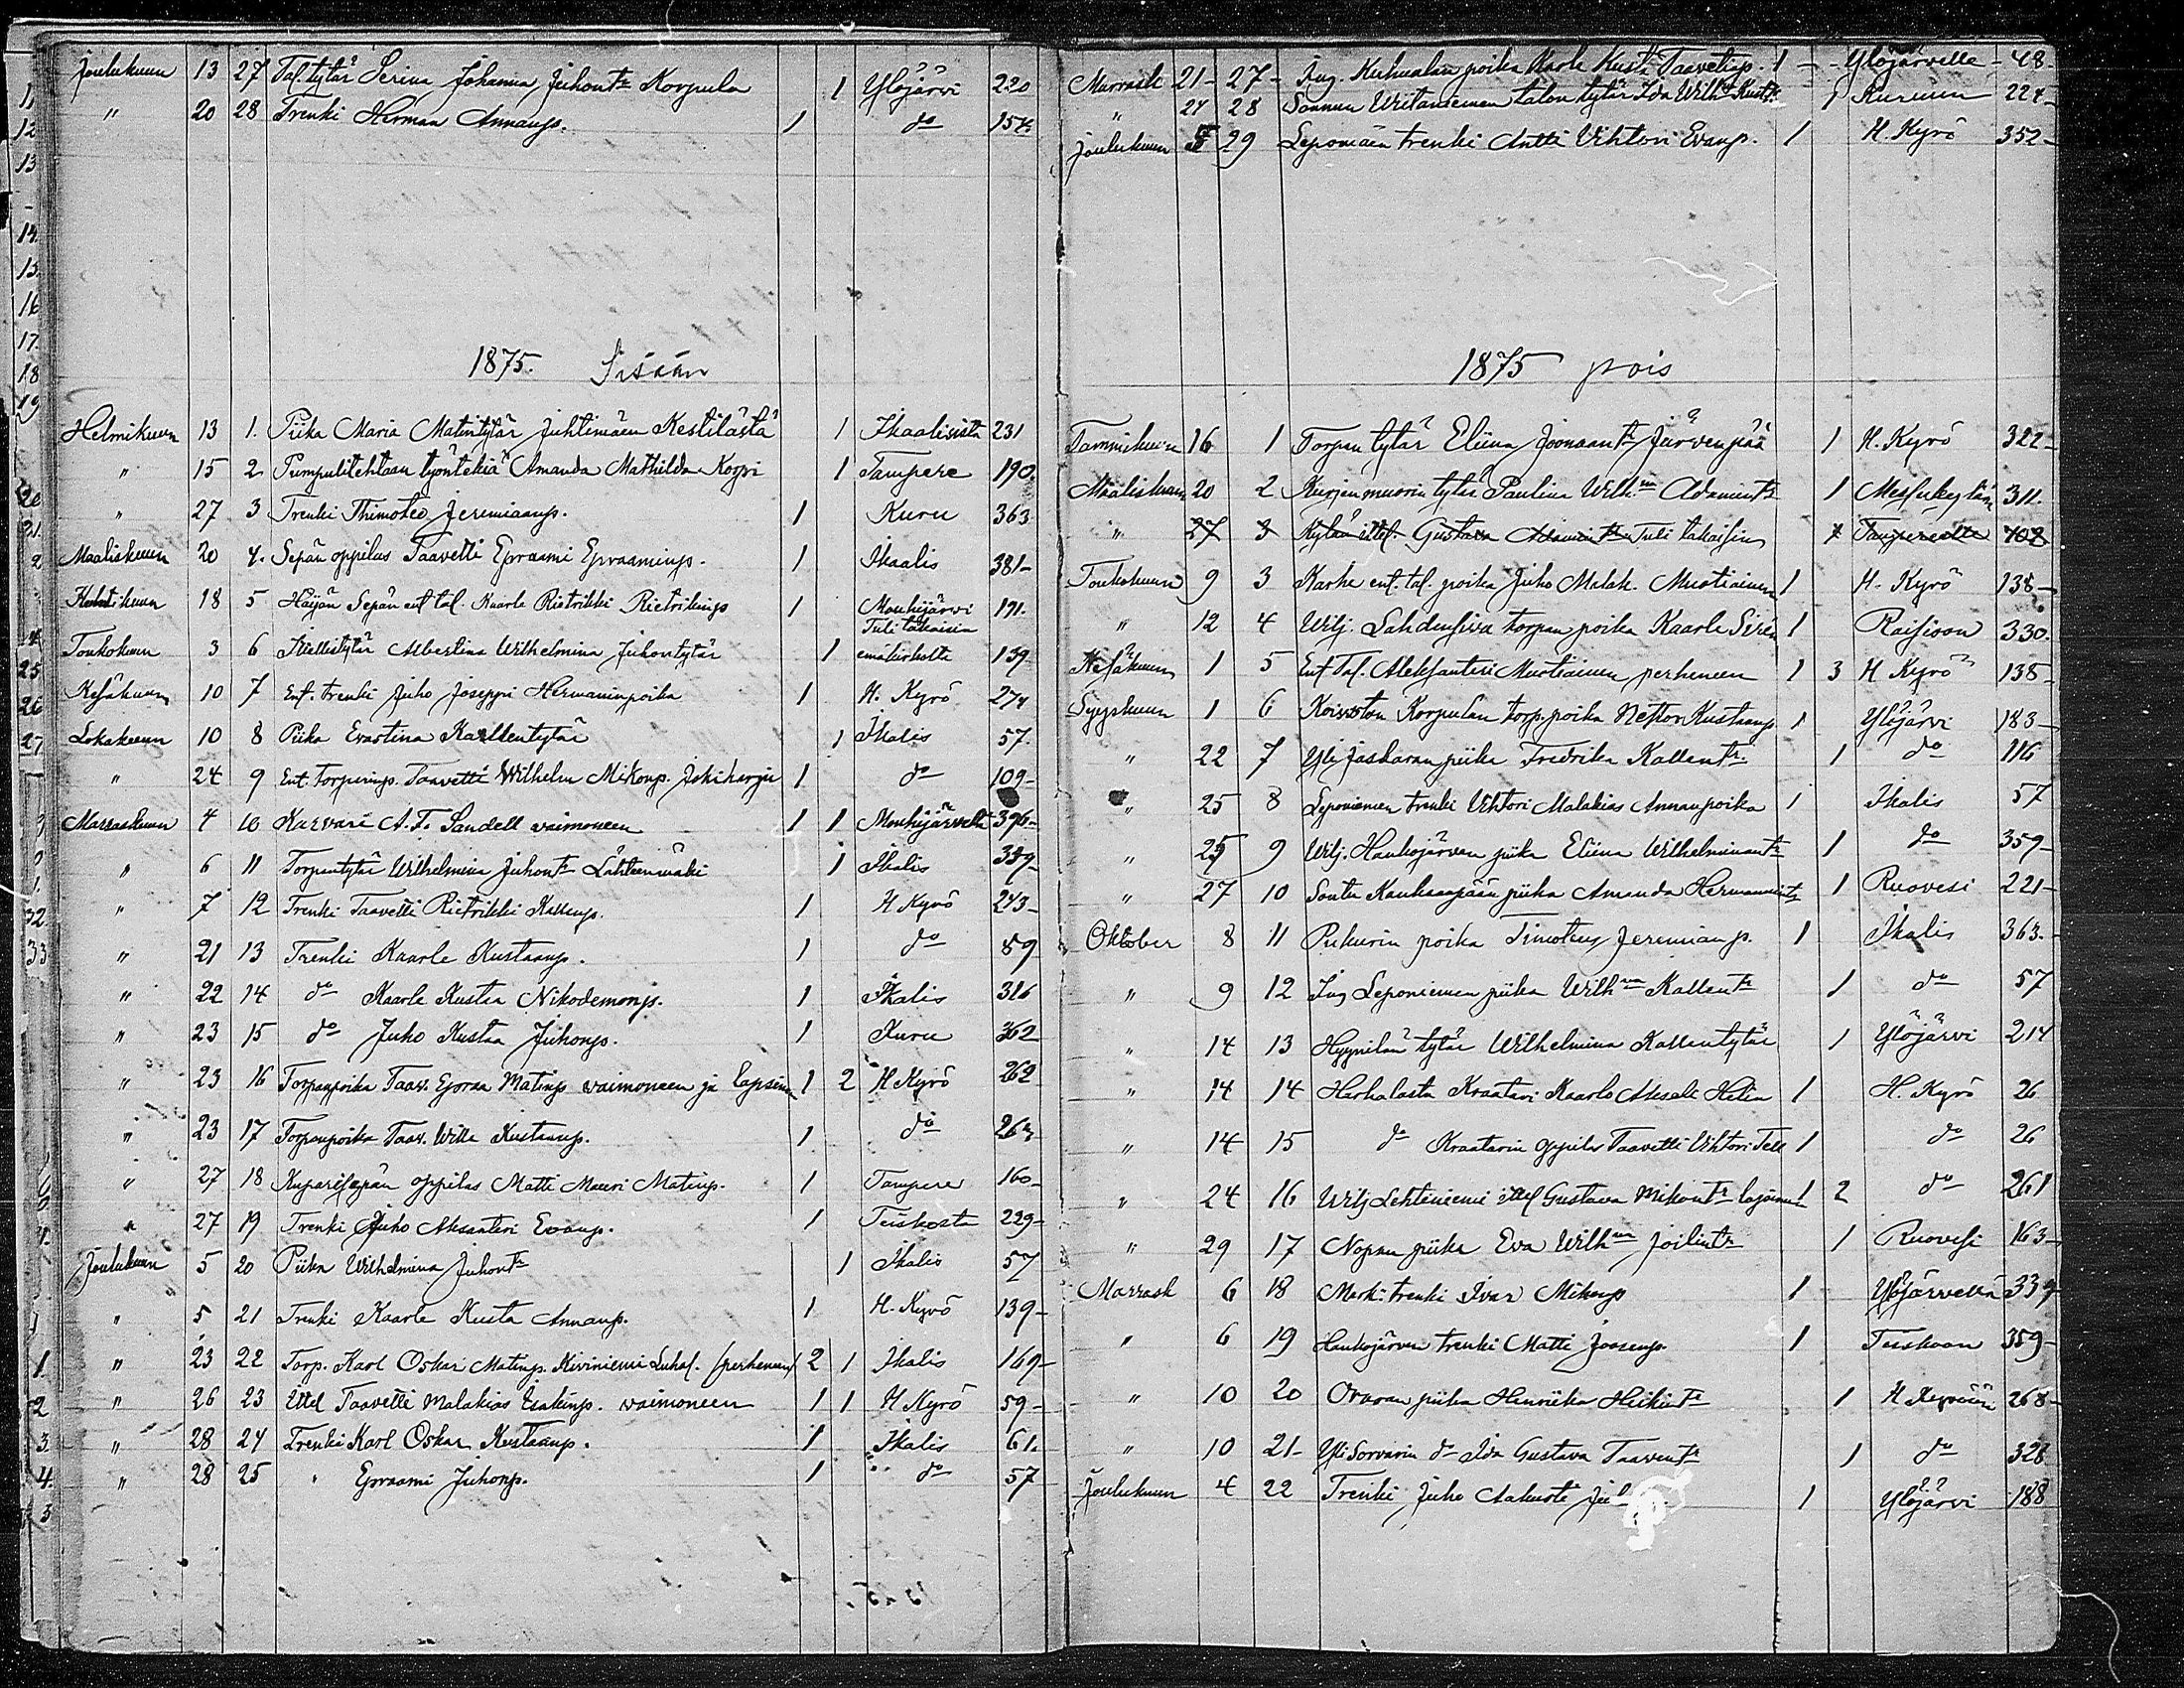 Joulukuun 13 27 Tal. tytär Serina Johanna Juhont:r Korpula 1 Ylöjärvi 220
" 20 28 Trenki Herman Annanp. 1 do 154
1875. Sisään
Helmikuun 13 1. Piika Maria Matintytär Juhtimäen Kestilästä 1 Ikaalisista 231
" 15 2 Pumpulitehtaan työntekiä Amanda Mathilda Korpi 1 Tampere 190.
" 27 3 Trenki Thimoteo Jeremiaanp. 1 Kuru 363
Maaliskuun 20 4. Sepän oppilas Taavetti Epraami Epraaminp. 1 Ikaalis 381-
Huhtikuun 18 5 Häijän Sepän ent tal. Kaarle Rietrikki Rietrikinp 1 Mouhijärwi 191.
Tuli takaisin
Toukokuun 3 6 Albertina Wilhelmina Juhontytär 1 emäkirkolta 139
Kesäkuun 10 7 Ent. trenki Juho Joseppi Hermaninpoika 1 H. Kyrö 274
Lokakuun 10 8 Piika Evastina Kallentytär 1 Ikalis 57.
" 24 9 Ent. torperinp. Taavetti Wilhelm Mikonp. Jokiharju 1 do 109-
Marraskuun 4 10 Karvari A. F. Sandell vaimoneen 1 1 Mouhijärveltä 396-
" 6 11 Torpantytär Wilhelmina Juhont:r Lähteenmäki 1 Ikalis 339-
" 7 12 Trenki Taavetti Rietrikki Kallenp. 1 H Kyrö 243-
" 21 13 Trenki Kaarle Kustaanp. 1 do 89
" 22 14 do Kaarle Kustaa Nikodemonp. 1 Ikalis 316
" 23 15 do Juho Kustaa Juhonp. 1 Kuru 362
" 23 16 Torpanpoika Taav. Eproa Matinp vaimoneen ja lapsineen 1 2 H Kyrö 262
" 23 17 Torpanpoika Taav. Wille Kustaanp. 1 do 262
" 27 18 Kuparisepän oppilas Matti Mauri Matinp. 1 Tampere 160-
" 27 19 Trenki Juho Aksanteri Evanp. 1 Teiskosta 229-
Joulukuun 5 20 Piika Wilhelmina Juhont:r 1 Ikalis 57
" 5 21 Trenki Kaarle Kusta Annanp. 1 H. Kyrö 139-
" 23 22 Torp. Karl Oskar Matinp. Kiviniemi Luhal. (perheneen) 2 1 Ikalis 169-
" 26 23 Ittel Taavetti Malakias Eenkinp. vaimoneen 1 1 H Kyrö 59-
" 28 24 Trenki Karl Oskar Kustaanp. 1 Ikalis 61.
" 28 25 " Epraami Juhonp. 1 do 57
Marrask 21- 27- Ing. Kuhnalan poika Karle Kusta Taavetinp. 1 - - Ylöjärvelle - 48-
" 24 28 Sonnun Wiitaniemen talon tytär Ida Wilh:a Kust:r 1 Kuruun 224-
Joulukuun 5 29 Leponiäen trenki Antti Vihtori Evanp. 1 H. Kyrö 352-
1875 pois
Tammikuun 16 1 Torpan tytär Eliina Joonaant:r Järvenpää 1 H. Kyrö 322-
Maaliskuun 20 2 Kurjenmuorin tytär Paulina Wilh:na Adamint:r 1 Messukylän 311.
" 27 3 Kylän ittel. Gustava Adamint:r Tuli takaisin 1 Tampereelle 402
Toukokuun 9 3 Karhe ent. tal. poika Juho Malak. Mustiainen 1 H. Kyrö 138-
" 12 4 Wilj. Lahdensiva torpan poika Kaarle Siren 1 Raisioon 330.
Kesäkuun 1 5 Ent Tal. Aleksanteri Mustiainen perheneen 1 3 H Kyrö 138-
Syyskuun 1 6 Koiviston Korpulan torp. poika Nestor Kustaanp 1 Ylöjärvi 183-
" 22 7 Yli Jaskaran piika Fredrika Kallent:r 1 do 116
" 25 8 Leponiemen trenki Vihtori Malakias Annanpoika 1 Ikalis 57
" 25 9 Wilj. Haukojärven piika Eliina Wilhelminant:r 1 do 359-
" 27 10 Sontu Kankaanpään piika Amanda Hermannint:r 1 Ruovesi 221-
Oktober 8 11 Pukurin poika Timoteus Jeremianp. 1 Ikalis 363.
" 9 12 Ing Leponiemen piika Wilh:na Kallent:r 1 do 57
" 14 13 Hyynilän tytär Wilhelmina Kallentytär 1 Ylöjärvi 214
" 14 14 Harhalasta Kraatari Kaarlo Akseli Helin 1 H. Kyrö 26
" 14 15 do Kraatarin oppilas Taavetti Vihtori Tell 1 do 26
" 24 16 Wilj Lehtiniemi ittel Gustava Mikont:r lapsineen 1 2 do 261
" 29 17 Nopan piika Eva Wilh:na Joilint:r 1 Ruovesi 163-
Marrask 6 18 Mark: trenki Ivar Mikonp 1 Ylöjärvellä 339
" 6 19 Haukojärven trenki Matti Joosenp. 1 Teiskoon 359-
" 10 20 Oravan piika Henrika Heikint:r 1 H Kyröön 268-
" 10 21- Yli Sorvarin do Ida Gustava Taavent:r 1 do 328
Joulukuun 4 22 Trenki Juho Aakusti 1 Ylöjärvi 188